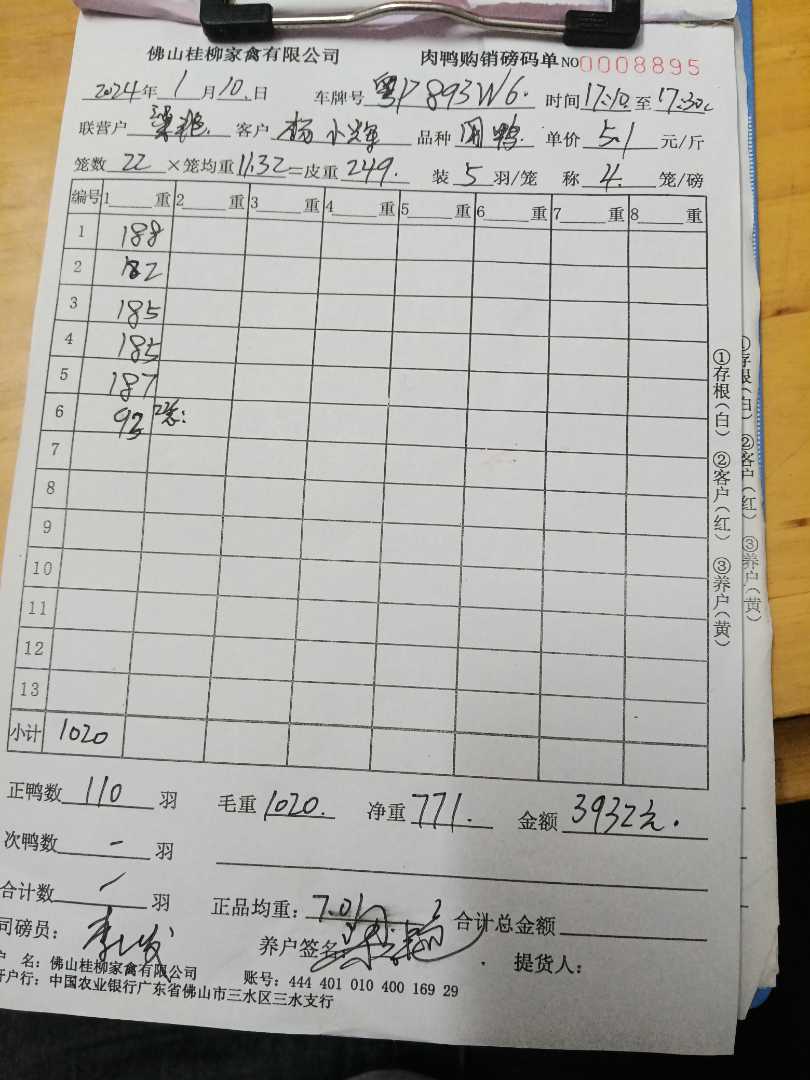 佛山桂柳家禽有限公司 肉鸭购销磅码单 NO 0008895
2024年 1 月 10 日 车牌号 粤P893W6. 时间 17:10 至 17:30
联营户 客户 杨小辉 品种 鸭 单价 5.1 元/斤
笼数 22 ×笼均重 11.32 =皮重 249. 装 5 羽/笼 称 4. 笼/磅
编号 1 重 2 重 3 重 4 重 5 重 6 重 7 重 8 重
1 188
2 182
3 185
4 185
5 187
6 93 22笼:
7
8
9
10
11
12
13
小计 1020
正鸭数 110 羽 毛重 1020. 净重 771. 金额 3932元.
次鸭数 - 羽
合计数 / 羽 正品均重: 7.01 合计总金额
司磅员: 养户签名: 提货人:
户 名: 佛山桂柳家禽有限公司 账号: 444 401 010 400 169 29
开户行: 中国农业银行广东省佛山市三水区三水支行
①存根(白) ②客户(红) ③养户(黄)
①存根(白) ②客户(红) ③养户(黄)